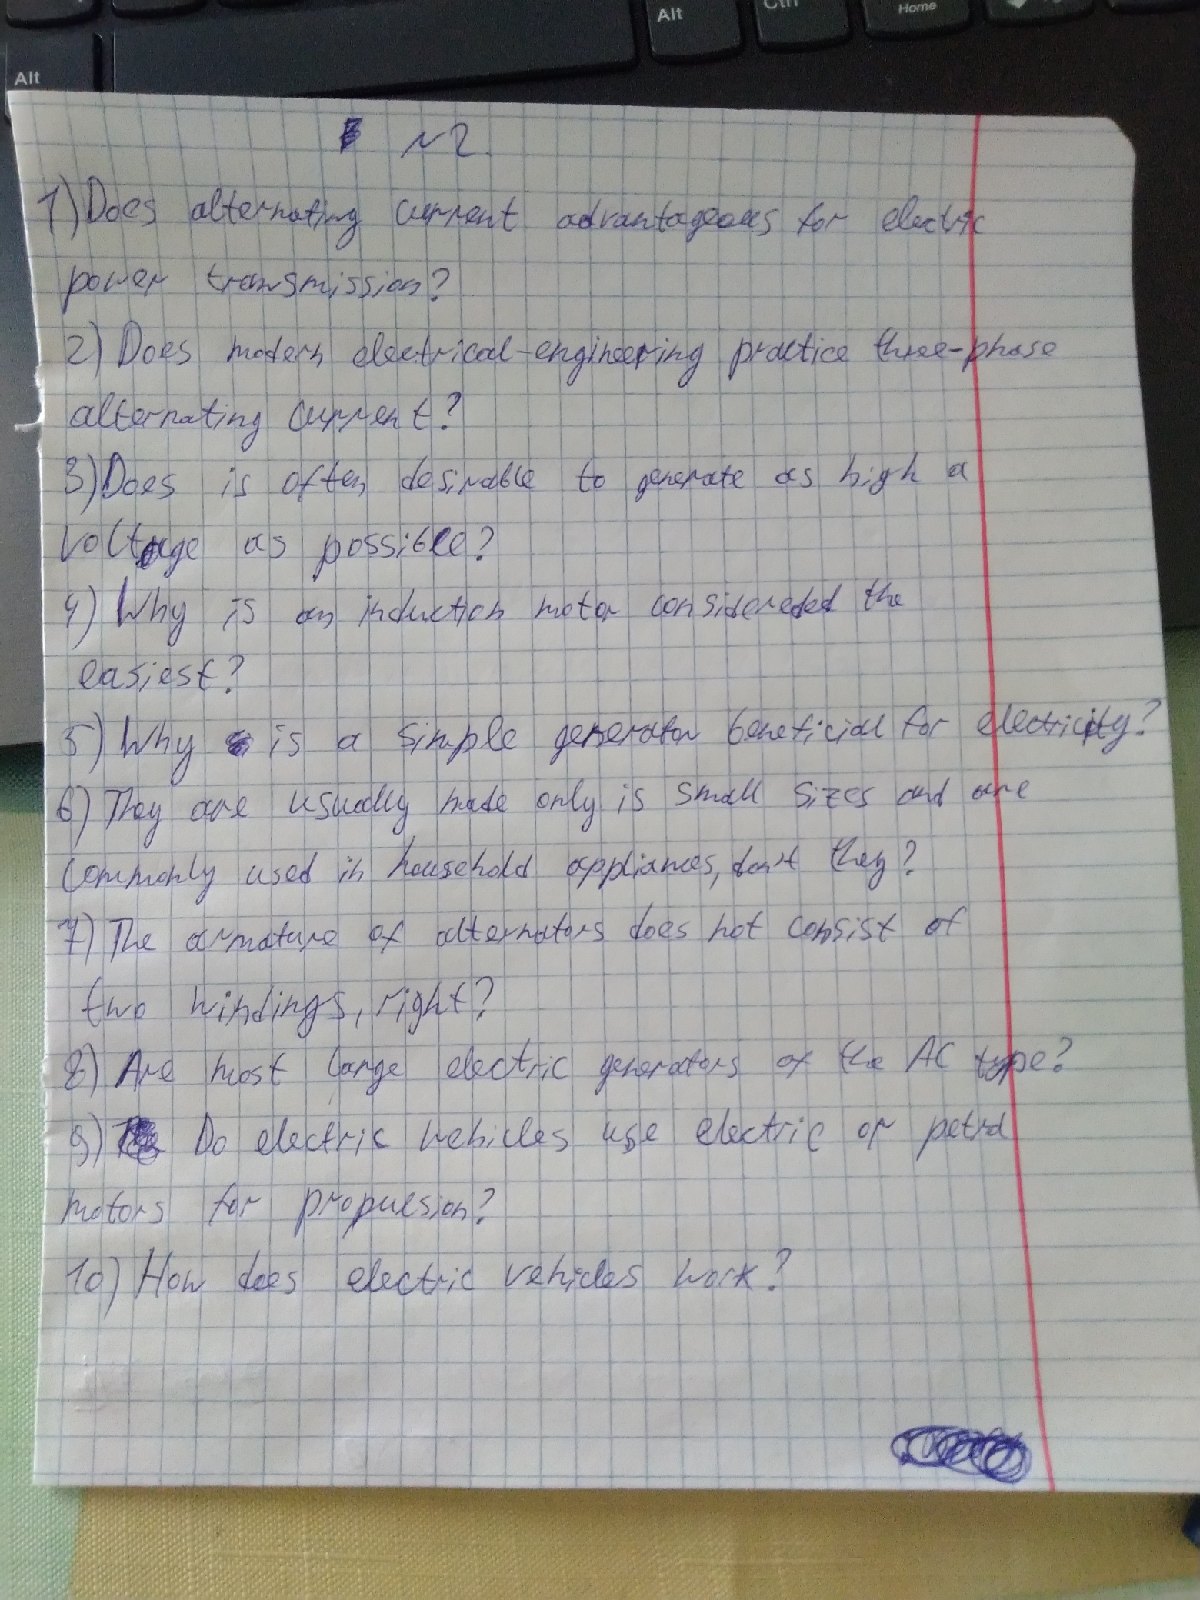 Alt
Alt
Ctrl
Home
N2.
1) Does alternating current advantageous for electric
power transmission?
2) Does modern electrical-engineering practice three-phase
alternating current?
3) Does is often desirable to generate as high a
voltage as possible?
4) Why is an induction motor considereded the
easiest?
5) Why is a simple generator beneficial for electricity?
6) They are usually made only is small sizes and are
commonly used in household appliances, don't they?
7) The armature of alternators does not consist of
two windings, right?
8) Are most large electric generators of the AC type?
9) Do electric vehicles use electric or petrol
motors for propulsion?
10) How does electric vehicles work?